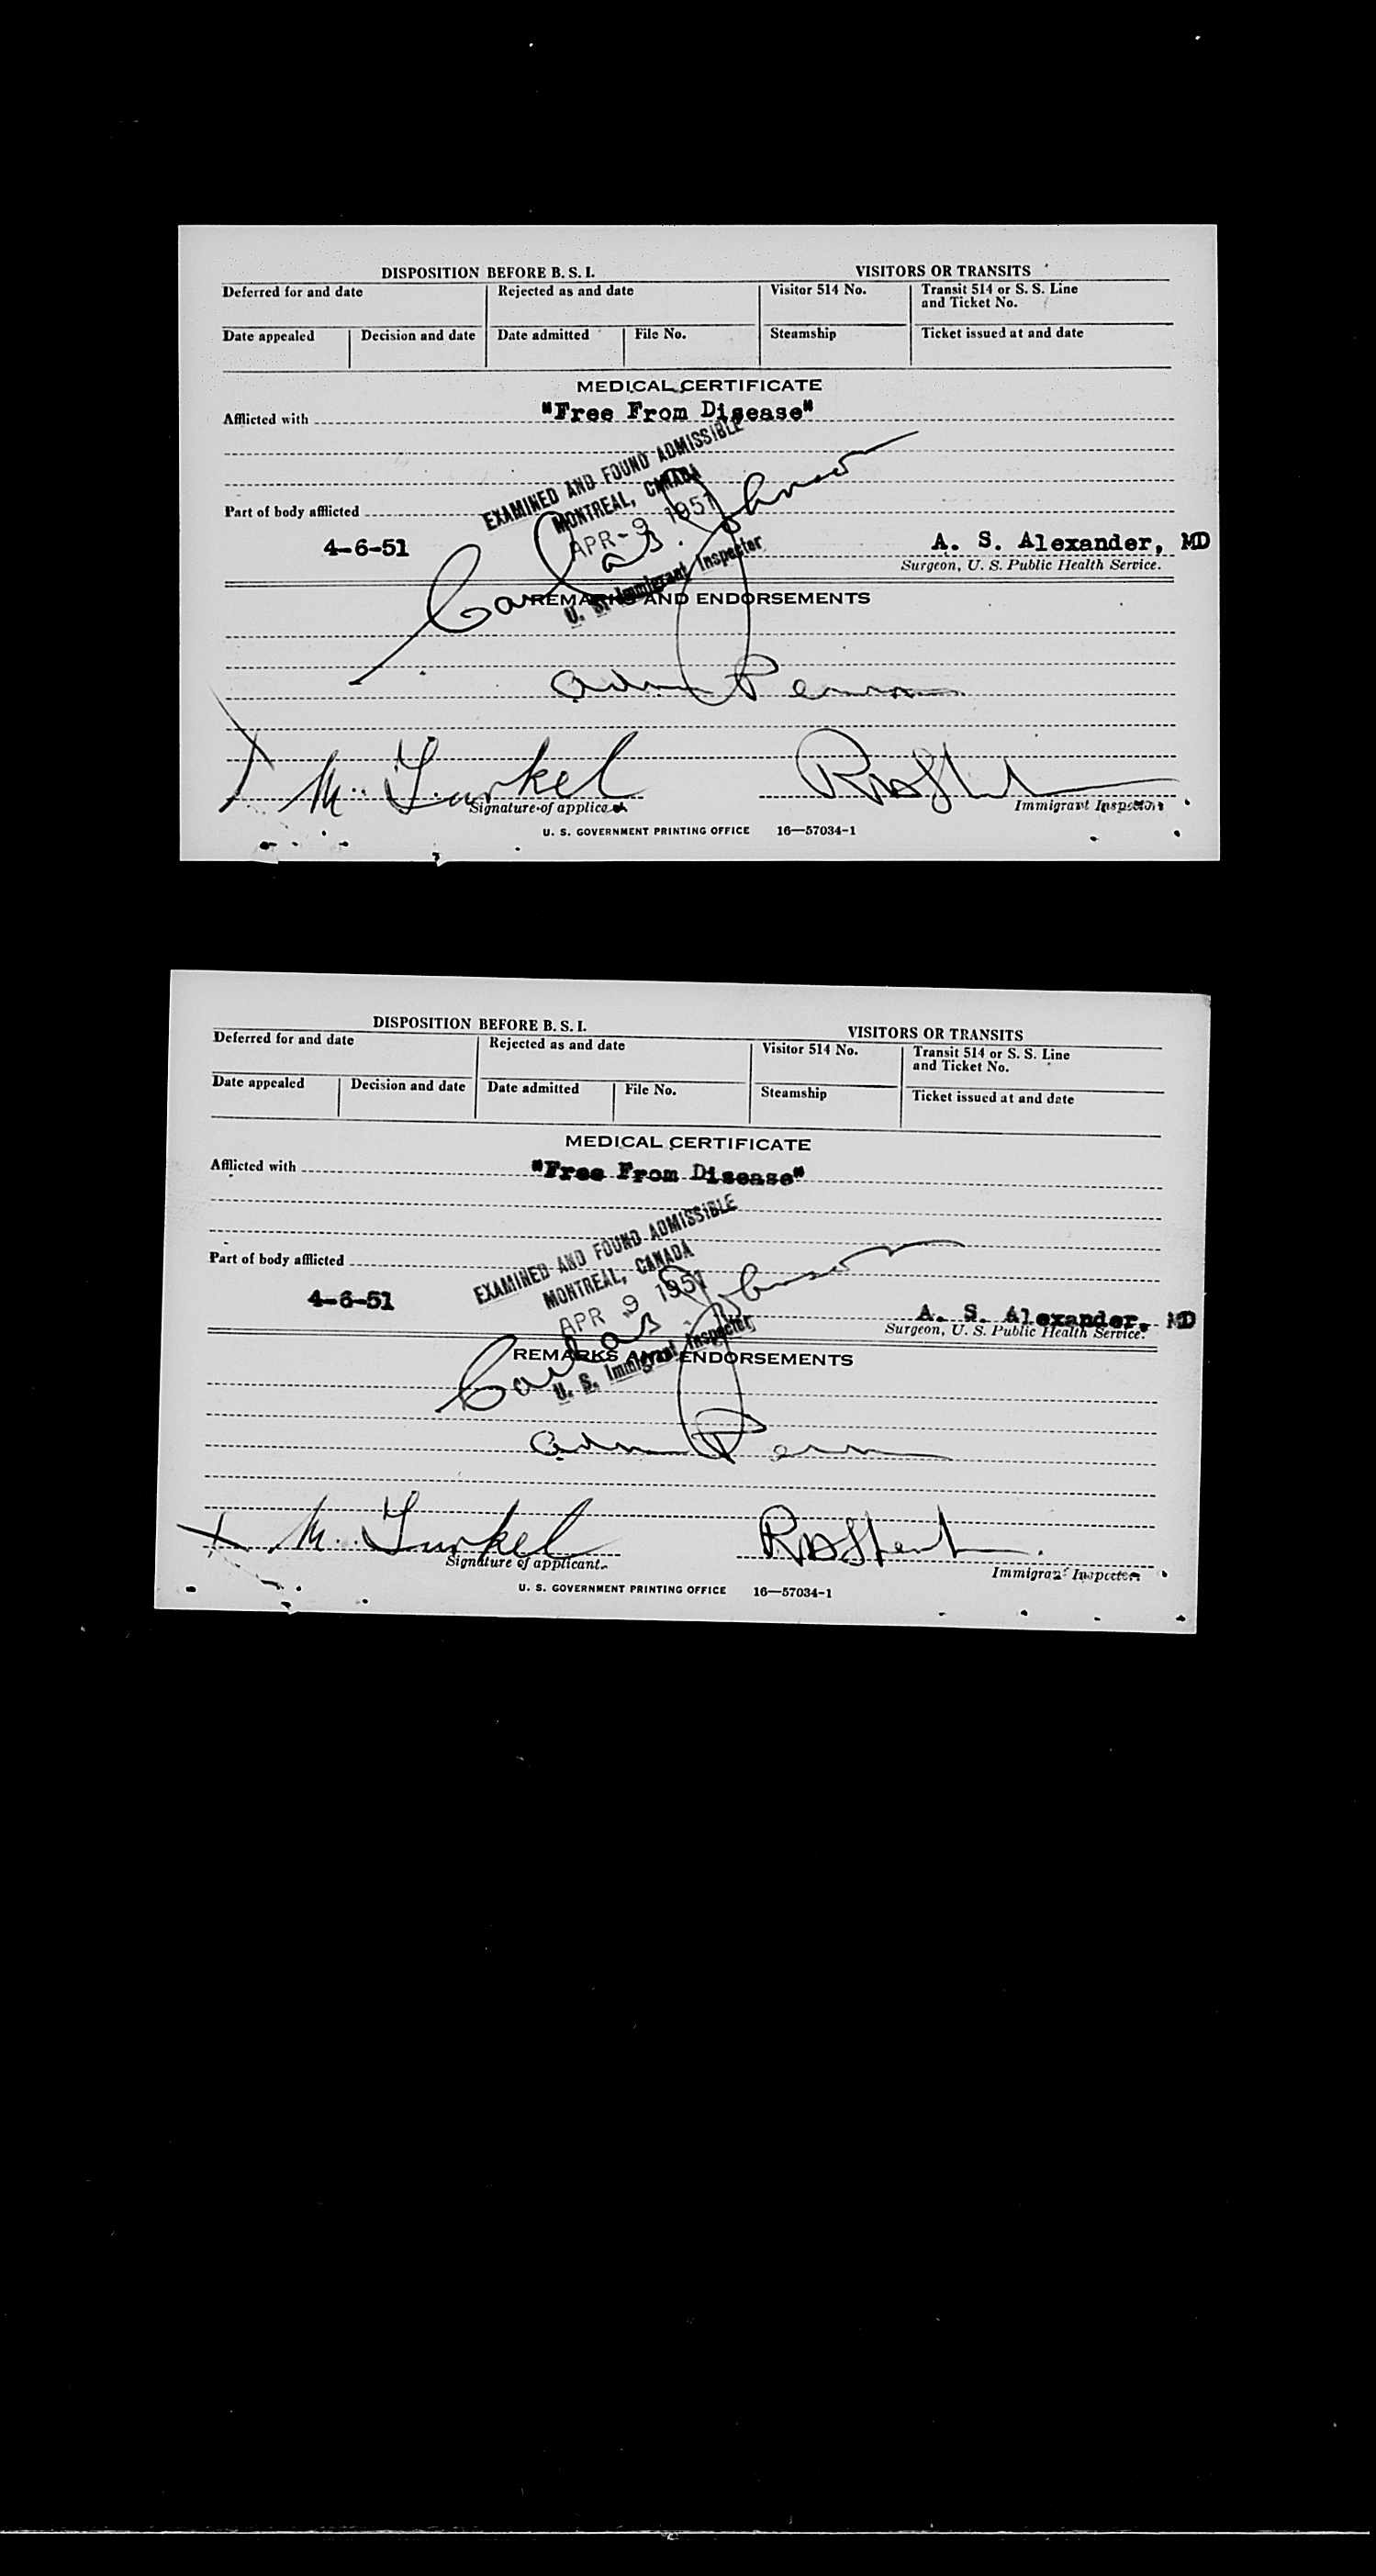 DISPOSITION BEFORE B. S. I.
VISITORS OR TRANSITS
Deferred for and date
Rejected as and date
Visitor 514 No.
Transit 514 or S. S. Line and Ticket No.
Date appealed
Decision and date
Date admitted
File No.
Steamship
Ticket issued at and date
MEDICAL CERTIFICATE
Afflicted with "Free From Disease"
EXAMINED AND FOUND ADMISSIBLE
MONTREAL, CANADA
APR-9 1951
U. S. Immigrant Inspector
Part of body afflicted
4-6-51
A. S. Alexander, MD
Surgeon, U. S. Public Health Service.
REMARKS AND ENDORSEMENTS
Johnson
adm Perm
Signature of applicant
Immigrant Inspector
U. S. GOVERNMENT PRINTING OFFICE 16—57034-1
DISPOSITION BEFORE B. S. I.
VISITORS OR TRANSITS
Deferred for and date
Rejected as and date
Visitor 514 No.
Transit 514 or S. S. Line and Ticket No.
Date appealed
Decision and date
Date admitted
File No.
Steamship
Ticket issued at and date
MEDICAL CERTIFICATE
Afflicted with "Free From Disease"
EXAMINED AND FOUND ADMISSIBLE
MONTREAL, CANADA
APR 9 1951
U. S. Immigrant Inspector
Part of body afflicted
4-6-51
A. S. Alexander, MD
Surgeon, U. S. Public Health Service.
REMARKS AND ENDORSEMENTS
Johnson
adm Perm
Signature of applicant.
Immigrant Inspector
U. S. GOVERNMENT PRINTING OFFICE 16—57034-1